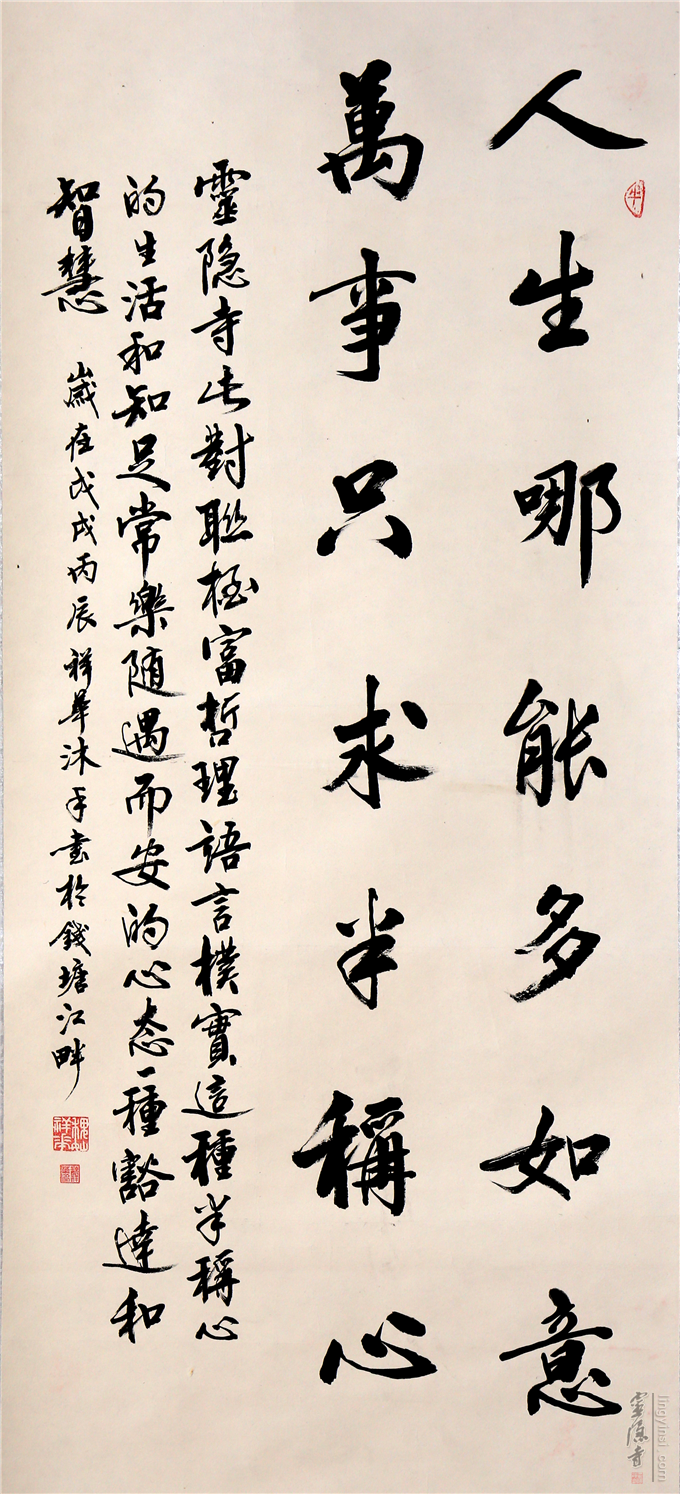 人生哪能多如意
萬事只求半稱心
靈隐寺此對聯極富哲理語言樸實這種半稱心
的生活和知足常樂随遇而安的心态一種豁達和
智慧
歲在戊戌丙辰祥華沐手書於錢塘江畔
半
靈隱寺
lingyinsi.com